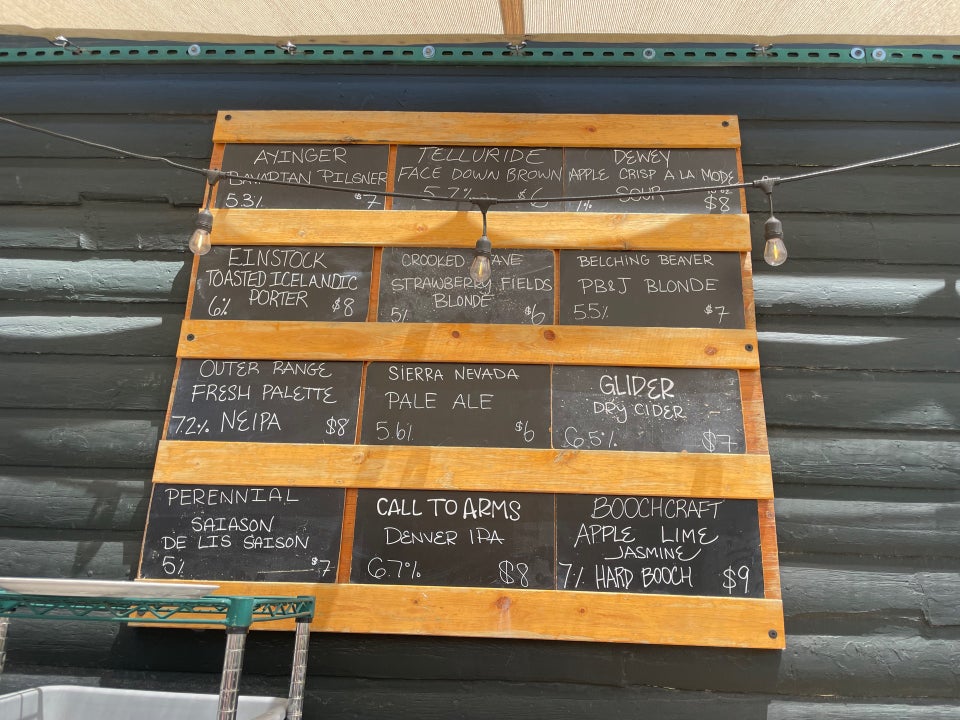 AYINGER
BAVARIAN PILSNER
5.3% $7
TELLURIDE
FACE DOWN BROWN
5.7% $6
DEWEY
APPLE CRISP A LA MODE
SOUR
$8
EINSTOCK
TOASTED ICELANDIC
PORTER
6% $8
CROOKED
STRAWBERRY FIELDS
BLONDE
5% $6
BELCHING BEAVER
PB&J BLONDE
55% $7
OUTER RANGE
FRESH PALETTE
7.2% NEIPA $8
SIERRA NEVADA
PALE ALE
5.6% $6
GLIDER
DRY CIDER
6.5% $7
PERENNIAL
SAIASON
DE LIS SAISON
5% $7
CALL TO ARMS
DENVER IPA
6.7% $8
BOOCHCRAFT
APPLE LIME
JASMINE
7% HARD BOOCH $9